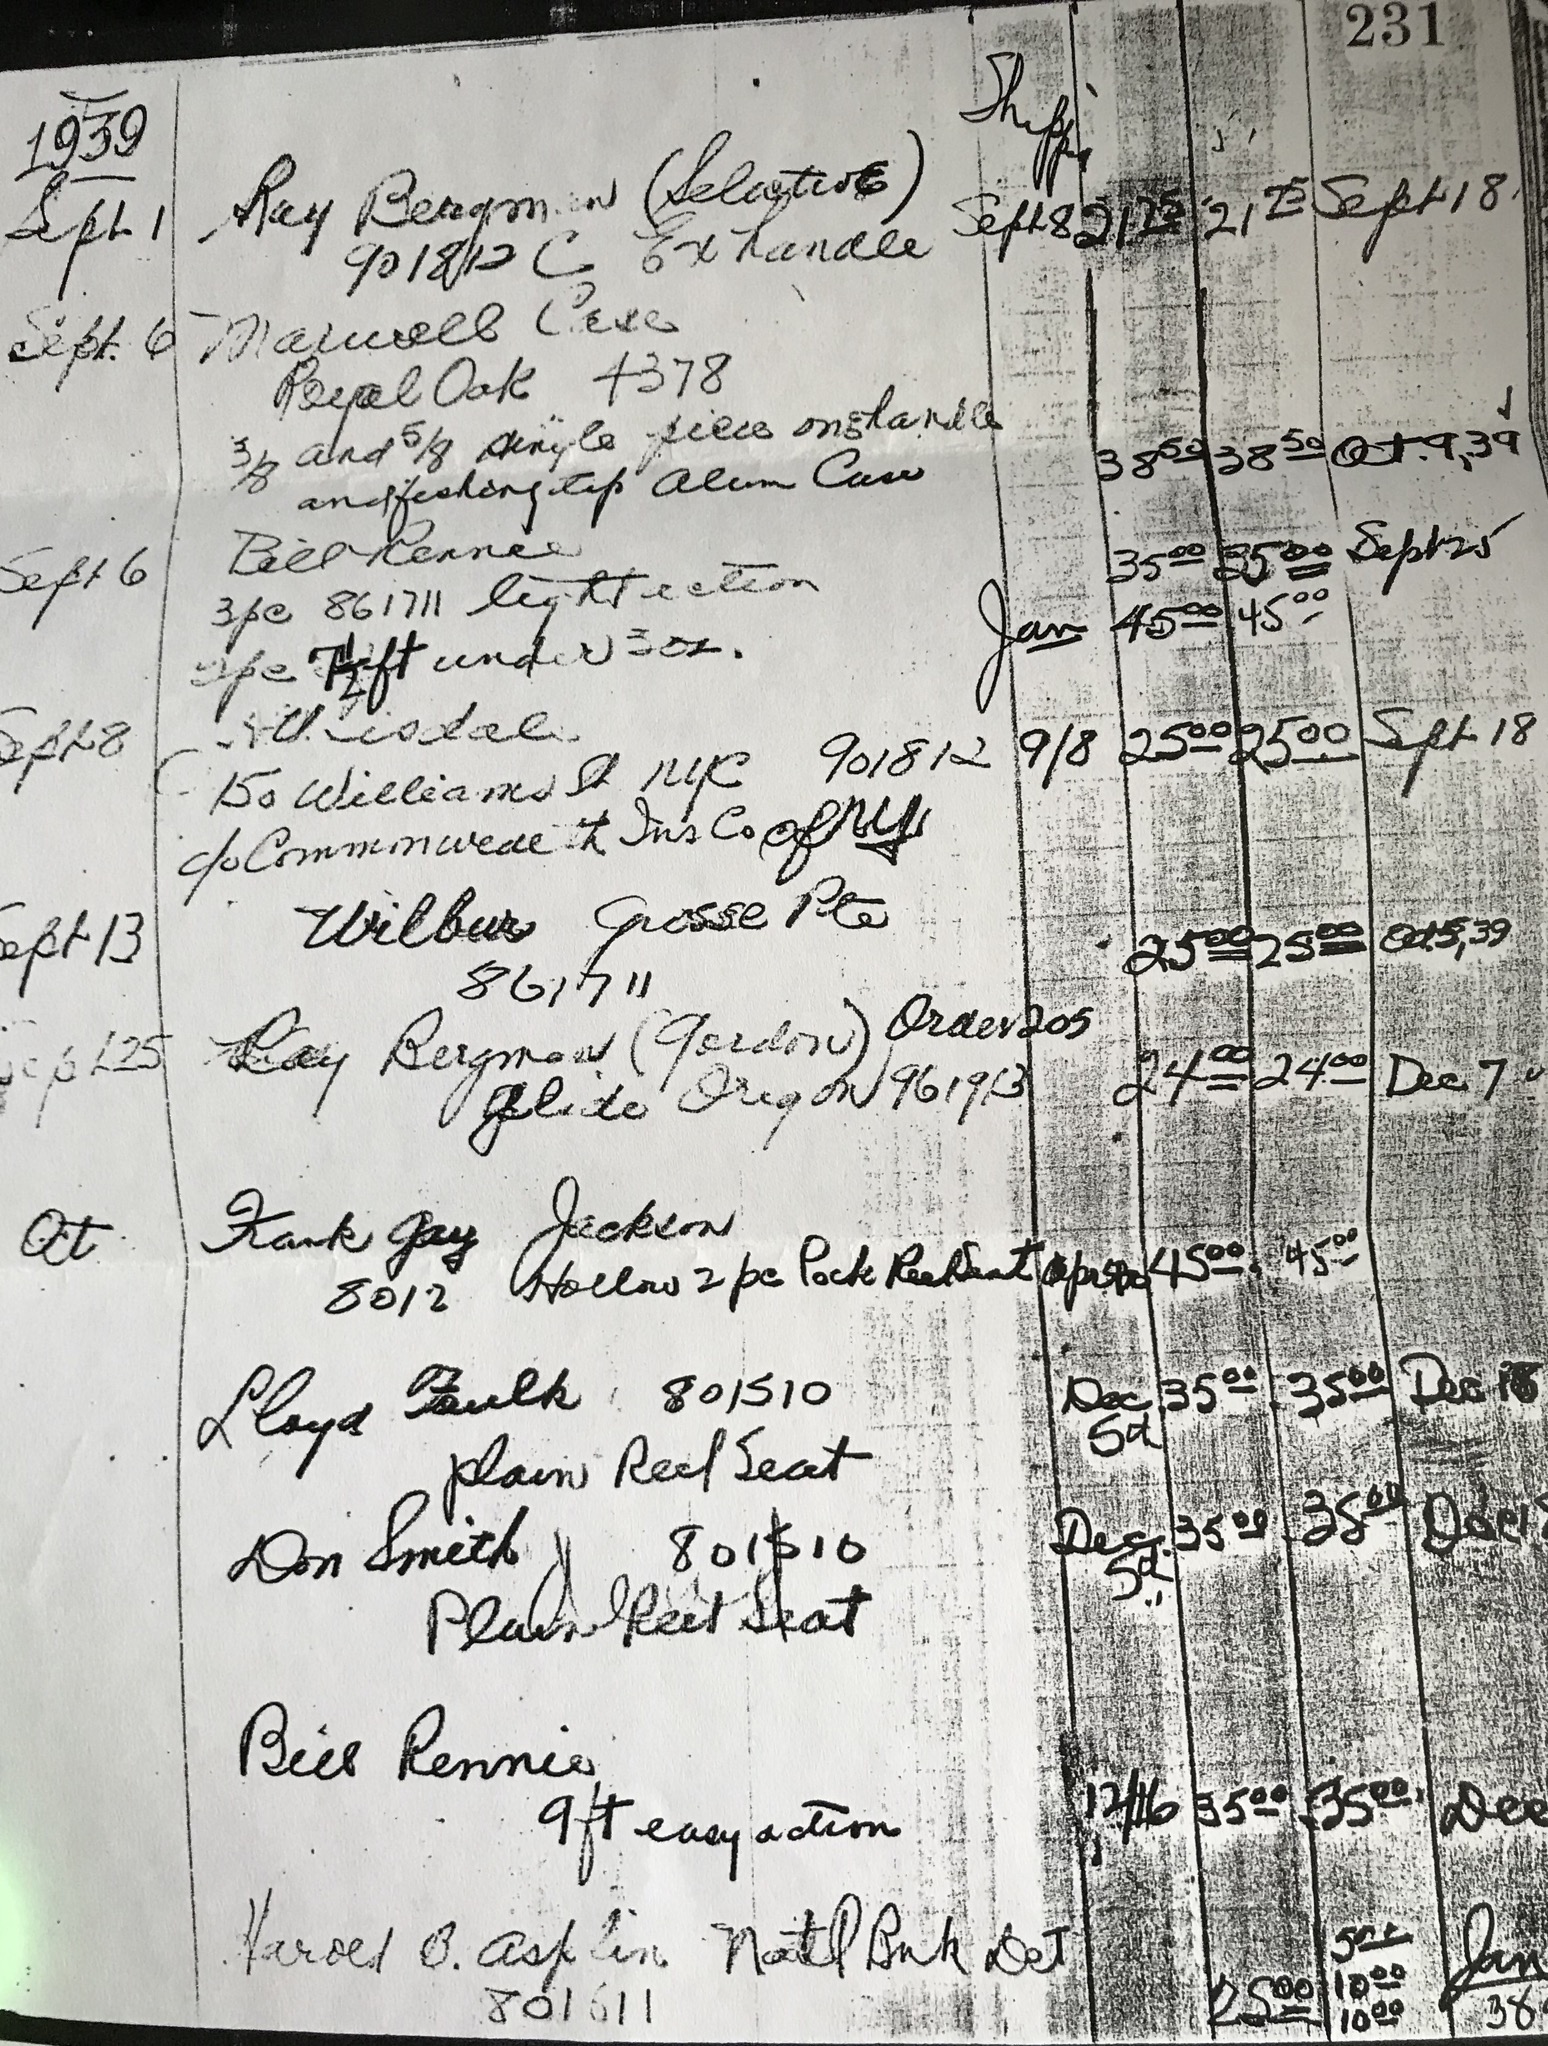 231
1939
Shipp
Sept 1 Ray Bergman (Selective)
901812 C Ex handle Sept 8 21 75 21 75 Sept 18
Sept. 6 Maxwell Case
Royal Oak +378
3/8 and 5/8 single piece one handle
and fishing tip Alum Case 38 50 38 50 Oct. 9, 39
Sept 6 Bill Rennie 35 00 35 00 Sept 25
3pc 861711 light action
2pc 7 1/2 ft under 3 oz. Jan 45 00 45 00
Sept 8
150 Williams St NYC 901812 9/8 25 00 25 00 Sept 18
c/o Commonwealth Ins Co of NY
Sept 13 Wilbur Grosse Pte 25 00 25 00 Oct 5, 39
861711
Sept 25 Ray Bergman (Gordon) Order 205
Glide Oregon 961913 24 00 24 00 Dec 7
Oct Frank Gay Jackson
8012 Hollow 2 pc Lock Reel Seat 45 00 45 00
Lloyd Faulk 801510 Dec 35 00 35 00 Dec 18
plain Reel Seat 5th
Don Smith 801510 Dec. 35 00 35 00
Plain Reel Seat 5th
Bill Rennie
9 ft easy action 12/16 35 00 35 00 Dec
Harold B. Asplin Natl Bnk Det 5 00 Jan
801611 25 00 10 00
10 00 38